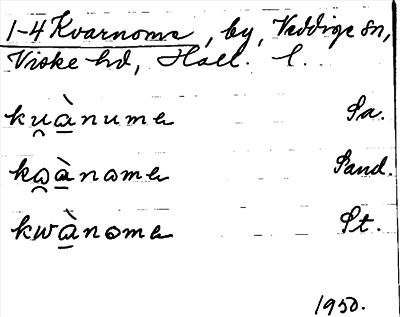 1-4 Kvarnome, by, Veddige sn,
Viske hd, Hall. l.
ku̯à̲nume Sa.
ko̯à̲nome Sand.
kwà̲nome St.
1950.